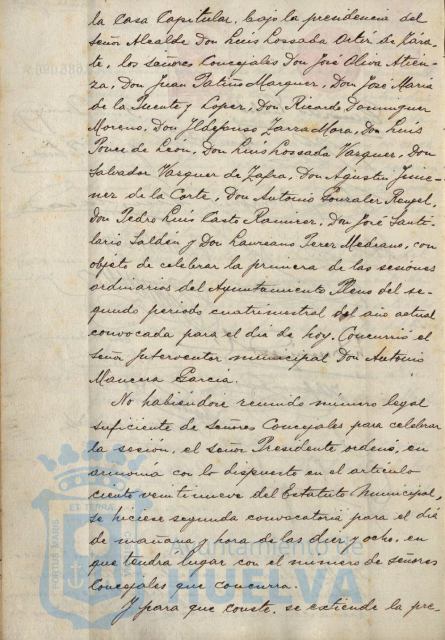 la Casa Capitular, bajo la presidencia del
señor Alcalde Don Luis Lossada Ortiz de Zára-
te, los señores Concejales Don José Oliva Atien-
za, Don Juan Patiño Marquez, Don José Maria
de la Puente y Lopez, Don Ricardo Dominguez
Moreno, Don Ildefonso Zarza Mora, Don Luis
Ponce de Leon, Don Luis Lossada Vazquez, Don
Salvador Vazquez de Zafra, Don Agustin Jime-
nez de la Corte, Don Antonio Gonzalez Rangel,
Don Pedro Luis Casto Ramirez, Don José Sante-
lario Saldén y Don Laureano Perez Mediano, con
objeto de celebrar la primera de las sesiones
ordinarias del Ayuntamiento Pleno del se-
gundo periodo cuatrimestral del año actual
convocada para el dia de hoy. Concurrió el
señor Interventor municipal Don Antonio
Mancera Garcia.
No habiendose reunido número legal
suficiente de Señores Concejales para celebrar
la sesión, el señor Presidente ordenó, en
armonía con lo dispuesto en el articulo
ciento veintinueve del Estatuto Municipal,
se hiciese segunda convocatoria para el dia
de mañana y hora de las diez y ocho, en
que tendrá lugar con el número de señores
Concejales que concurra.
Y para que conste, se extiende la pre-
PORTUS MARIS
ET TERRAE
Ayuntamiento de
HUELVA